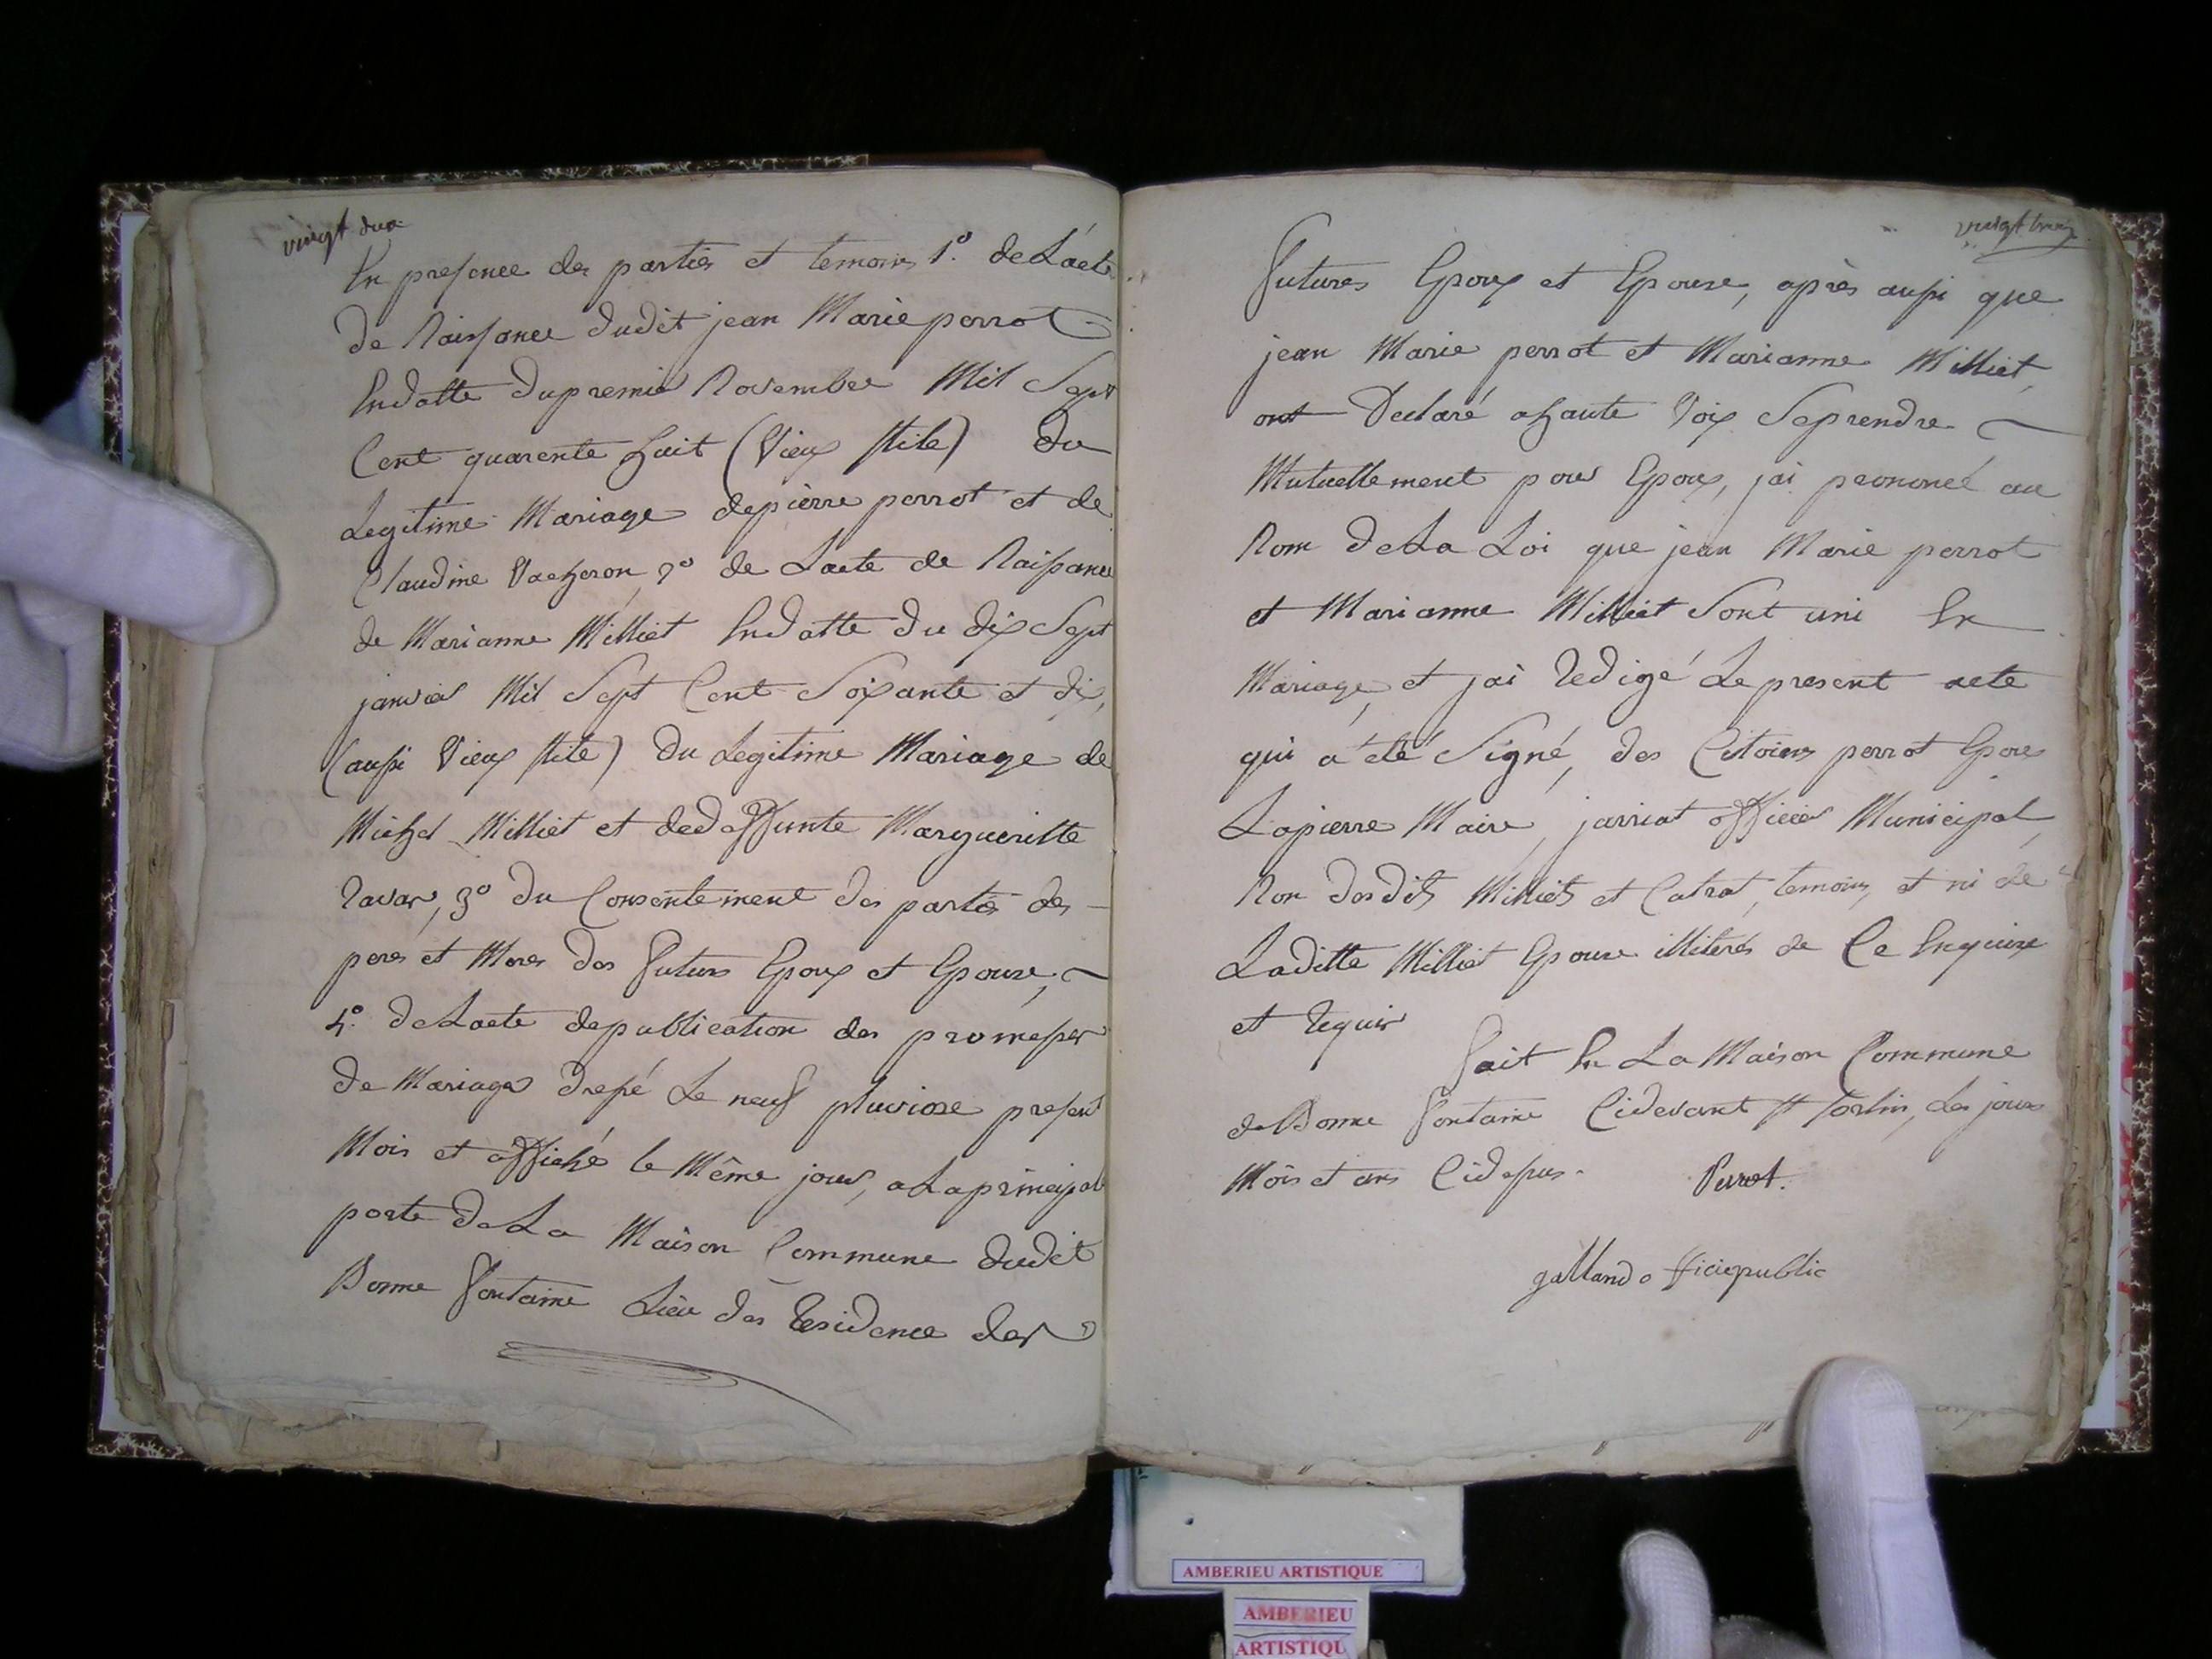 vingt deux
En presence des parties et temoins 1.° de L'acte
de Naissance dudit jean Marie perrot
Endatte dupremier Novembre Mil Sept
Cent quarente huit (Vieux stile) du
Legitime Mariage depierre perrot et de
Claudine Vacheron, 2° de Lacte de Naissance
de Marianne Milliet Endatte du dix Sept
janvier Mil Sept Cent Soixante et dix,
(aussi Vieux stile) Du Legitime Mariage de
Michel Milliet et dedeffunte Margueritte
Ravar, 3° du Consentement des parties des
peres et Meres des futurs Epoux et Epouse,
4.° deLacte depublication des promesses
de Mariage dressé Le neuf pluviose present
Mois et affiché le Même jour, a Laprincipal
porte deLa Maison Commune dudit
Bonne fontaine Lieu des Residence des
vingt trois
futures Epoux et Epouse, après aussi que
jean Marie perrot et Marianne Milliet,
ont Declaré ahaute Voix Seprendre
Mutuellement pour Epoux, jai prononcé au
Nom deLa Loi que jean Marie perrot
et Marianne Milliet Sont uni En
Mariage, et jai Redigé Le present acte
qui a été Signé, des Citoiens perrot Epoux
Lapierre Maire, jarriat officier Municipal,
Non desdits Milliet et Catrat, temoins, et ni de
Laditte Milliet Epouse illiterés de Ce Enquise
et Requis
fait En La Maison Commune
de Bonne fontaine Cidevant St Sorlin, Les jour
Mois et ans Cidessus.
Perrot.
galland officiepublic
AMBERIEU ARTISTIQUE
AMBERIEU
ARTISTIQU